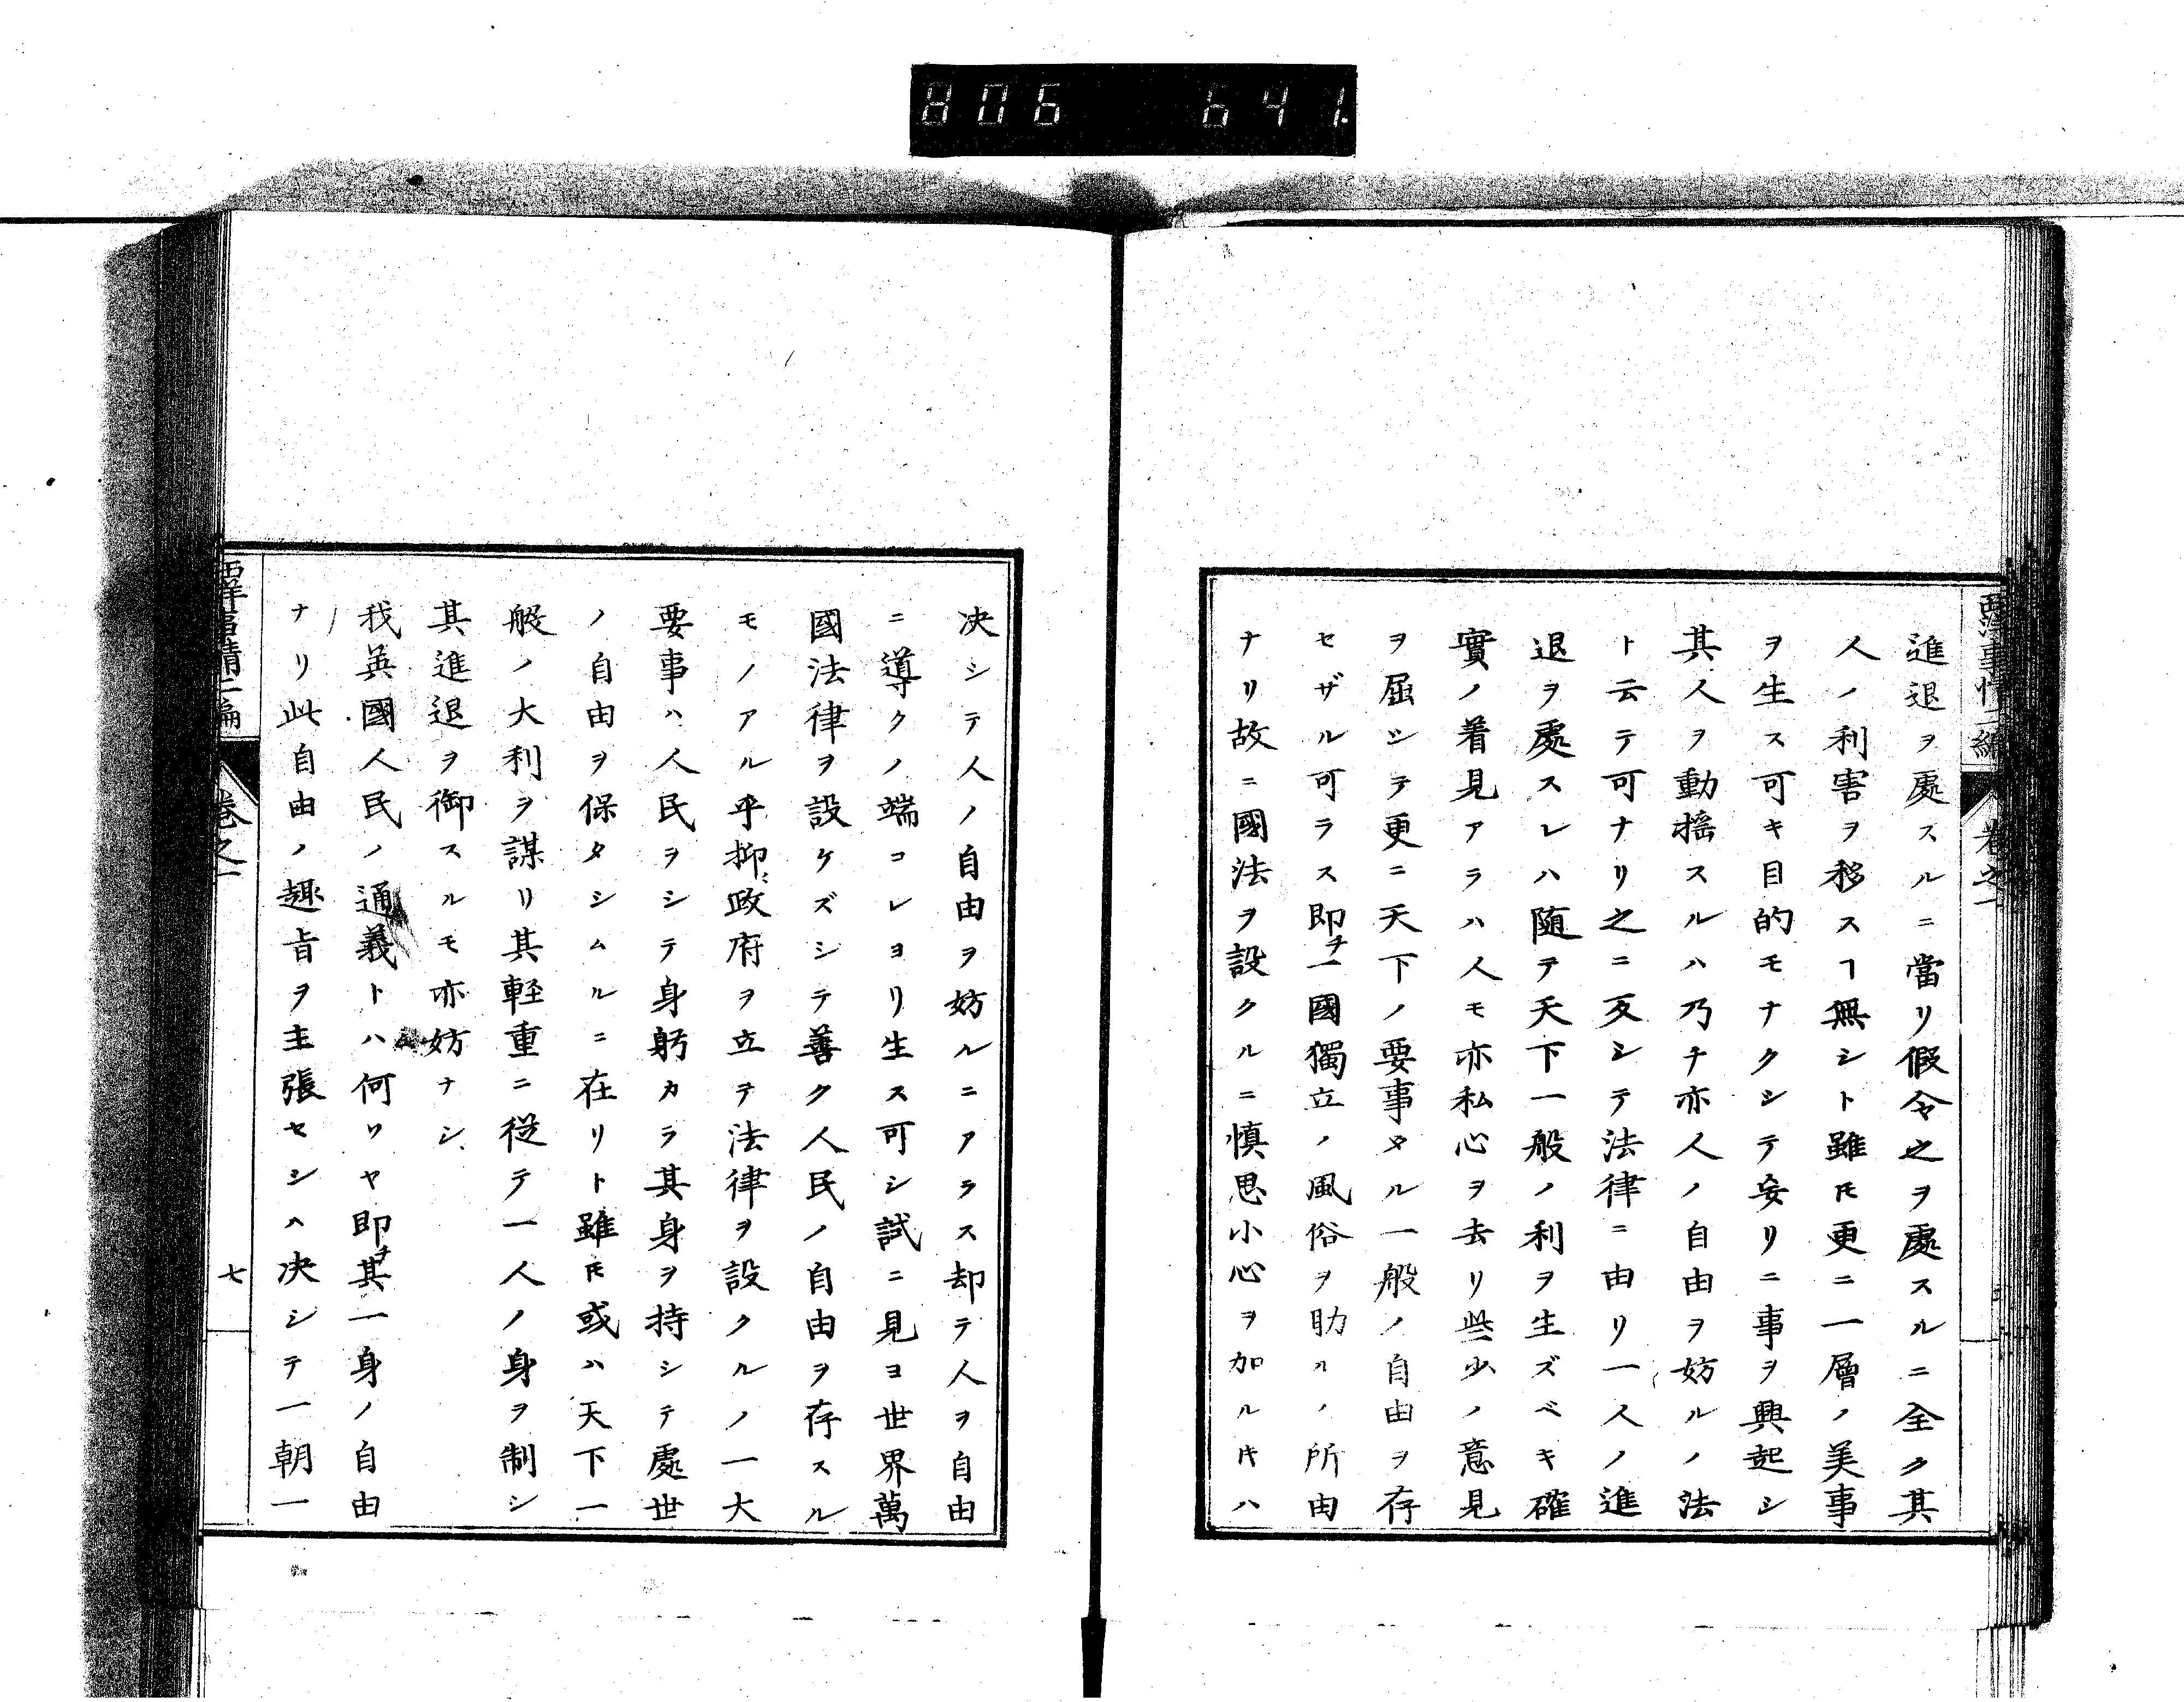 806 641.
西洋事情二編 卷之一
進退ヲ處スルニ當リ假令之ヲ處スルニ全ク其
人ノ利害ヲ移スヿ無シト雖𪜈更ニ一層ノ美事
ヲ生ス可キ目的モナクシテ妄リニ事ヲ興起シ
其人ヲ動揺スルハ乃チ亦人ノ自由ヲ妨ルノ法
ト云テ可ナリ之ニ反シテ法律ニ由リ一人ノ進
退ヲ處スレハ随テ天下一般ノ利ヲ生ズベキ確
實ノ着見アラハ人モ亦私心ヲ去リ些少ノ意見
ヲ屈シテ更ニ天下ノ要事タル一般ノ自由ヲ存
セザル可ラス即チ一國獨立ノ風俗ヲ助ルノ所由
ナリ故ニ國法ヲ設クルニ慎思小心ヲ加ルトキハ
决シテ人ノ自由ヲ妨ルニアラス却テ人ヲ自由
ニ導クノ端コレヨリ生ス可シ試ニ見ヨ世界萬
國法律ヲ設ケズシテ善ク人民ノ自由ヲ存スル
モノアル乎抑〻政府ヲ立テ法律ヲ設クルノ一大
要事ハ人民ヲシテ身躬カラ其身ヲ持シテ處世
ノ自由ヲ保タシムルニ在リト雖𪜈或ハ天下一
般ノ大利ヲ謀リ其軽重ニ從テ一人ノ身ヲ制シ
其進退ヲ御スルモ亦妨ナシ
我英國人民ノ通義トハ何ソヤ即チ其一身ノ自由
ナリ此自由ノ趣旨ヲ主張セシハ决シテ一朝一
西洋事情二編 卷之一 七